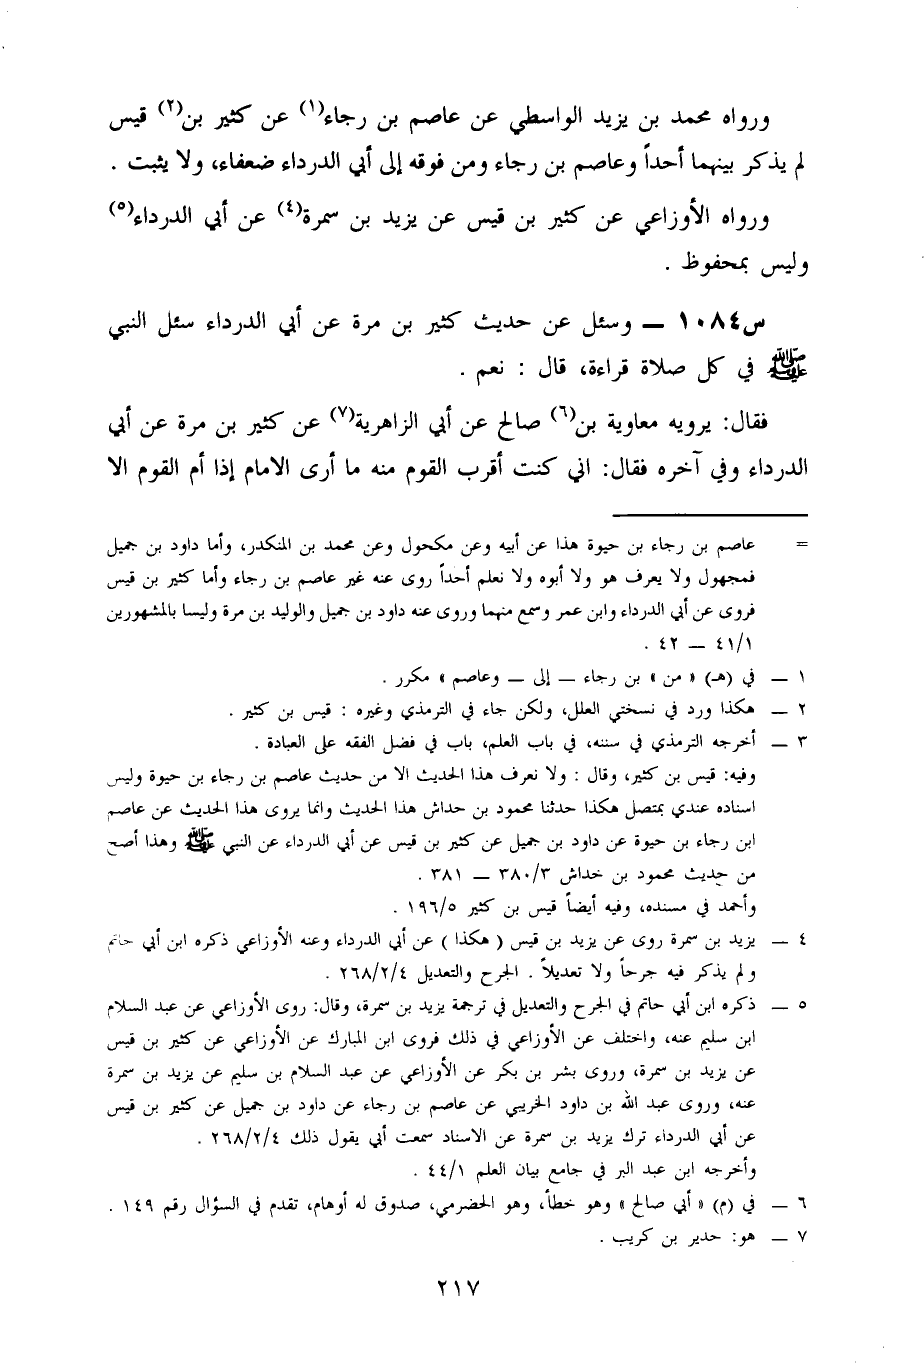 ورواه محمد بن يزيد الواسطي عن عاصم بن رجاء(١) عن كثير بن(٢) قيس
لم يذكر بينهما أحداً وعاصم بن رجاء ومن فوقه إلى أبي الدرداء ضعفاء، ولا يثبت .
ورواه الأوزاعي عن كثير بن قيس عن يزيد بن سمرة(٤) عن أبي الدرداء(٥)
وليس بمحفوظ .
س١٠٨٤ – وسئل عن حديث كثير بن مرة عن أبي الدرداء سئل النبي
ﷺ في كل صلاة قراءة، قال : نعم .
فقال: يرويه معاوية بن(٦) صالح عن أبي الزاهرية(٧) عن كثير بن مرة عن أبي
الدرداء وفي آخره فقال: اني كنت أقرب القوم منه ما أرى الامام إذا أم القوم الا
= عاصم بن رجاء بن حيوة هذا عن أبيه وعن مكحول وعن محمد بن المنكدر، وأما داود بن جميل
فمجهول ولا يعرف هو ولا أبوه ولا نعلم أحداً روى عنه غير عاصم بن رجاء وأما كثير بن قيس
فروى عن أبي الدرداء وابن عمر وسمع منهما وروى عنه داود بن جميل والوليد بن مرة وليسا بالمشهورين
٤١/١ – ٤٢ .
١ – في (هـ) « من » بن رجاء – إلى – وعاصم » مكرر .
٢ – هكذا ورد في نسختي العلل، ولكن جاء في الترمذي وغيره : قيس بن كثير .
٣ – أخرجه الترمذي في سننه، في باب العلم، باب في فضل الفقه على العبادة .
وفيه: قيس بن كثير، وقال : ولا نعرف هذا الحديث الا من حديث عاصم بن رجاء بن حيوة وليس
اسناده عندي بمتصل هكذا حدثنا محمود بن حداش هذا الحديث وانما يروى هذا الحديث عن عاصم
ابن رجاء بن حيوة عن داود بن جميل عن كثير بن قيس عن أبي الدرداء عن النبي ﷺ وهذا أصح
من حديث محمود بن خداش ٣٨٠/٣ – ٣٨١ .
وأحمد في مسنده، وفيه أيضاً قيس بن كثير ١٩٦/٥ .
٤ – يزيد بن سمرة روى عن يزيد بن قيس ( هكذا ) عن أبي الدرداء وعنه الأوزاعي ذكره ابن أبي حاتم
ولم يذكر فيه جرحاً ولا تعديلاً . الجرح والتعديل ٢٦٨/٢/٤ .
٥ – ذكره ابن أبي حاتم في الجرح والتعديل في ترجمة يزيد بن سمرة، وقال: روى الأوزاعي عن عبد السلام
ابن سليم عنه، واختلف عن الأوزاعي في ذلك فروى ابن المبارك عن الأوزاعي عن كثير بن قيس
عن يزيد بن سمرة، وروى بشر بن بكر عن الأوزاعي عن عبد السلام بن سليم عن يزيد بن سمرة
عنه، وروى عبد الله بن داود الخريبي عن عاصم بن رجاء عن داود بن جميل عن كثير بن قيس
عن أبي الدرداء ترك يزيد بن سمرة عن الاسناد سمعت أبي يقول ذلك ٢٦٨/٢/٤ .
وأخرجه ابن عبد البر في جامع بيان العلم ٤٤/١ .
٦ – في (م) « أبي صالح » وهو خطأ، وهو الحضرمي، صدوق له أوهام، تقدم في السؤال رقم ١٤٩ .
٧ – هو: حدير بن كريب .
٢١٧